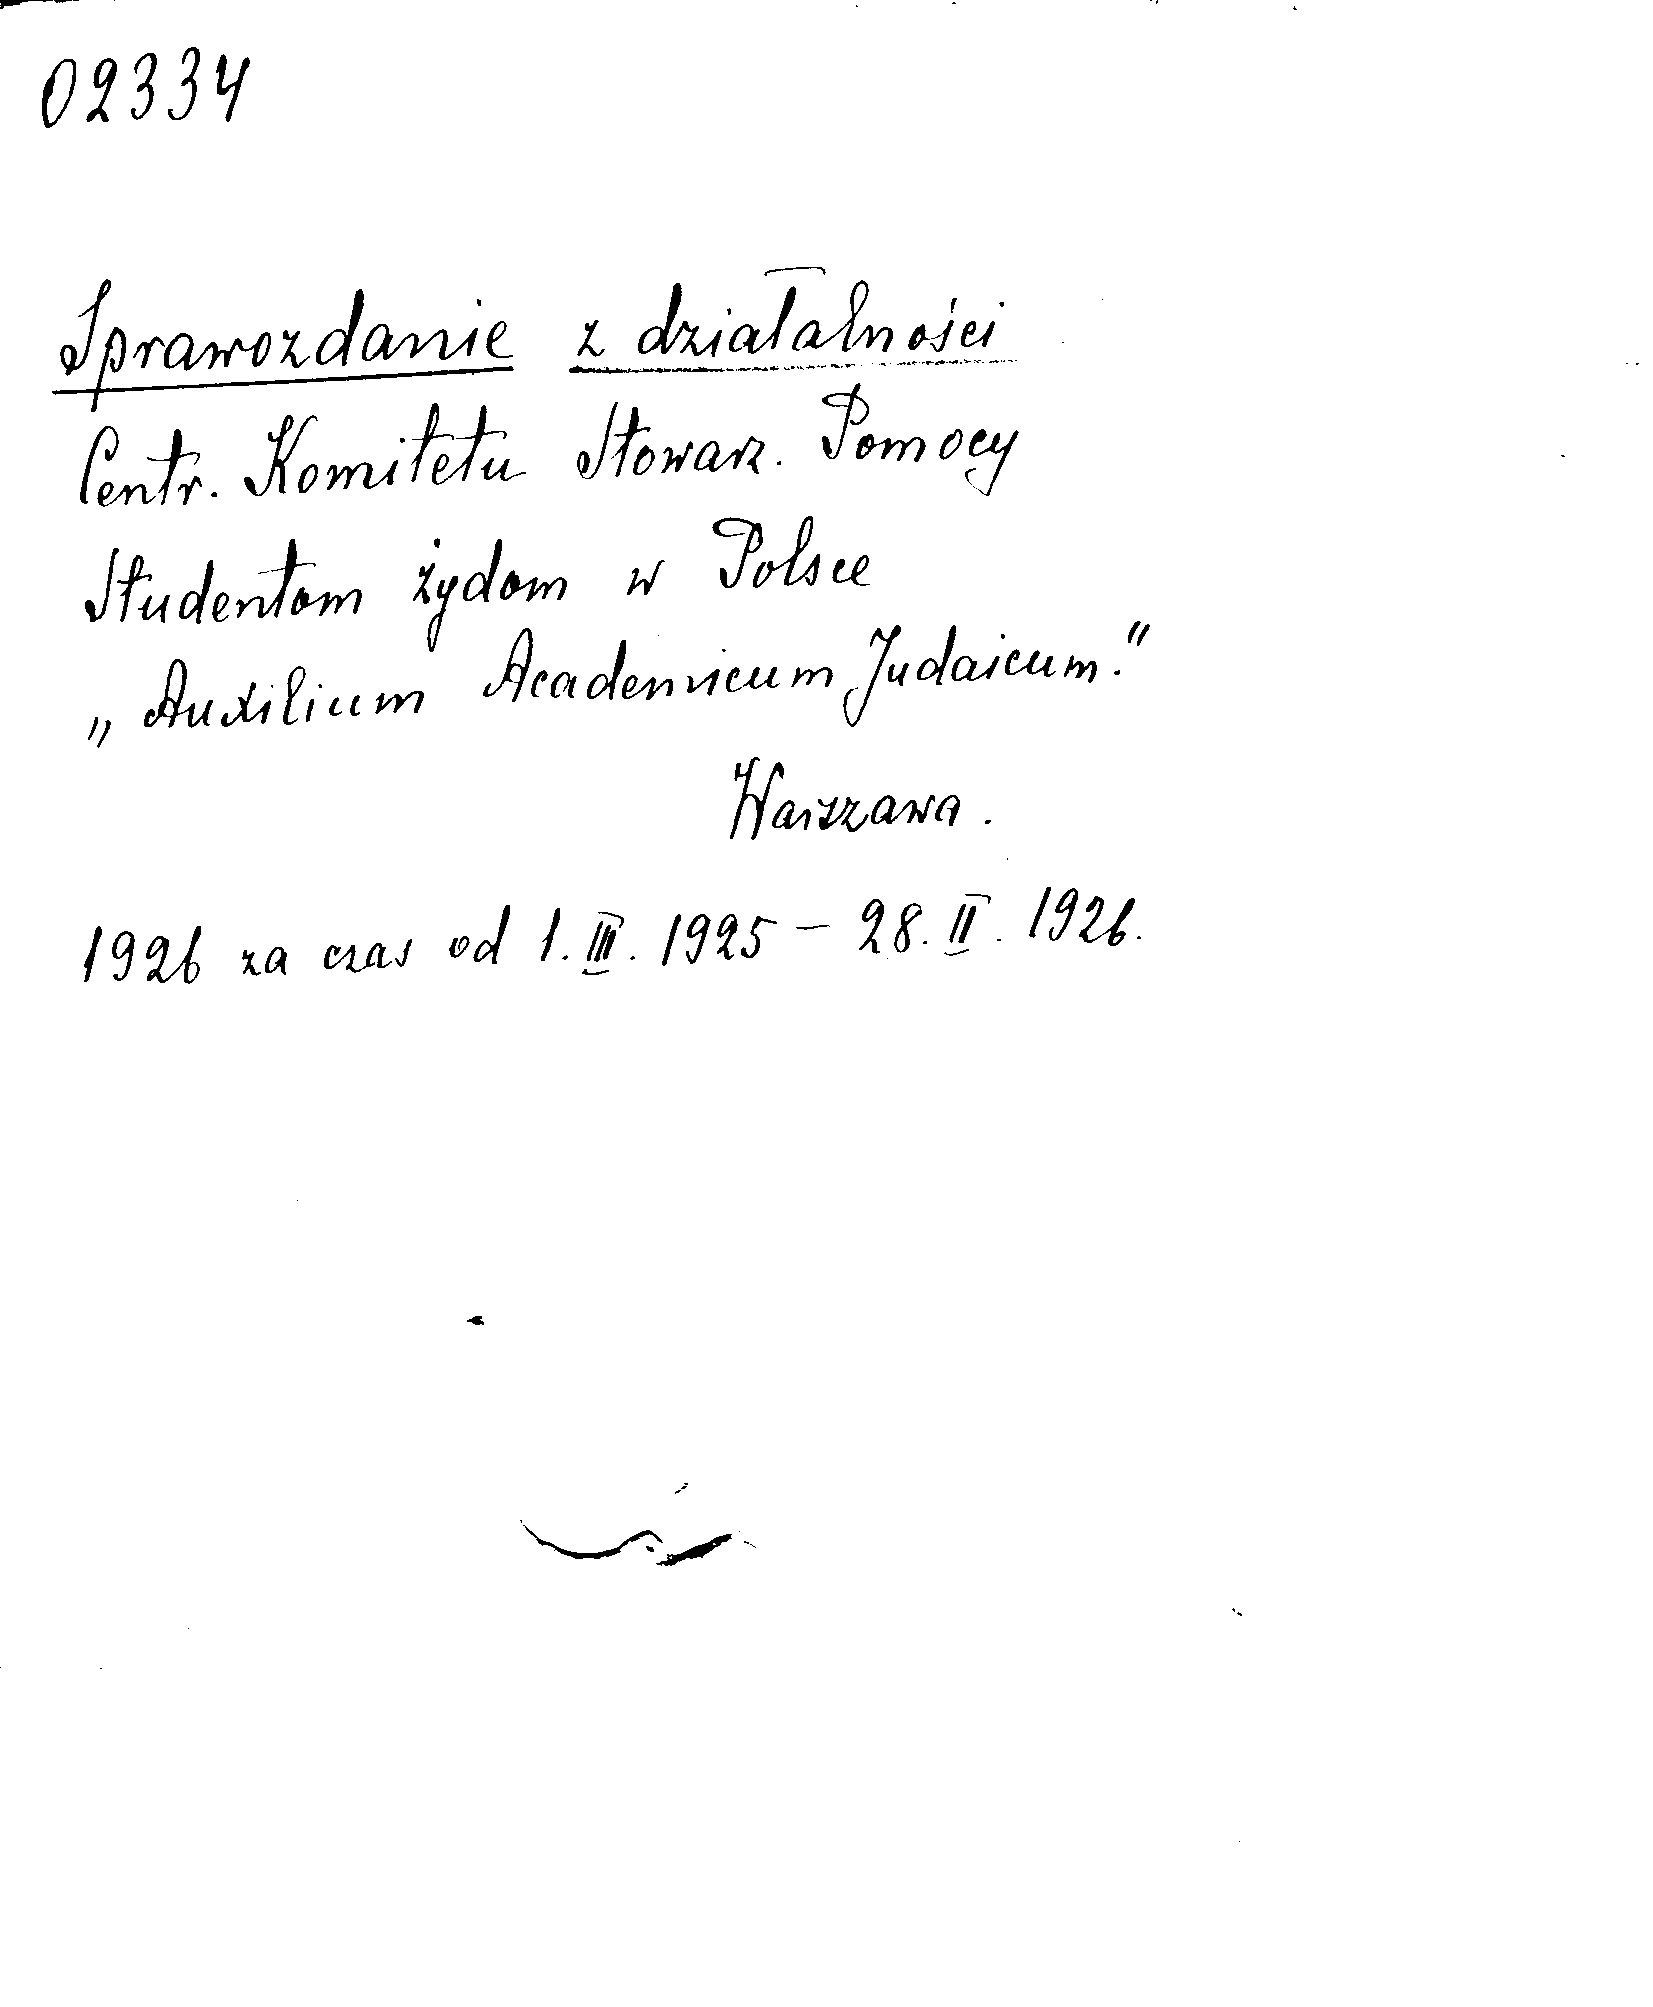 02334
Sprawozdanie z działalności
Centr. Komitetu Stowarz. Pomocy
Studentom żydom w Polsce
„Auxilium Academicum Judaicum."
Warszawa.
1926 za czas od 1. III. 1925 – 28. II. 1926.